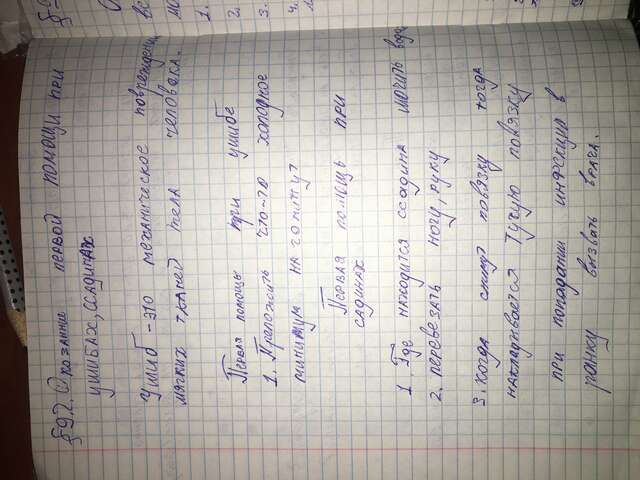 §9.2. Оказание первой помощи при
ушибах, ссадинах
Ушиб - это механическое повреждени
мягких тканей тела человека.
Первая помощь при ушибе
1. Приложить что-то холодное
минимум на
Первая помощь при
садинах
1. Где находится ссадина мочить вода
2. перевезать ногу, руку
3. когда снимут повязку тогда
накладывается тугую повязку
при попадании инфекция в
ранку вызвать врача.
§
1.
2.
3.
4.